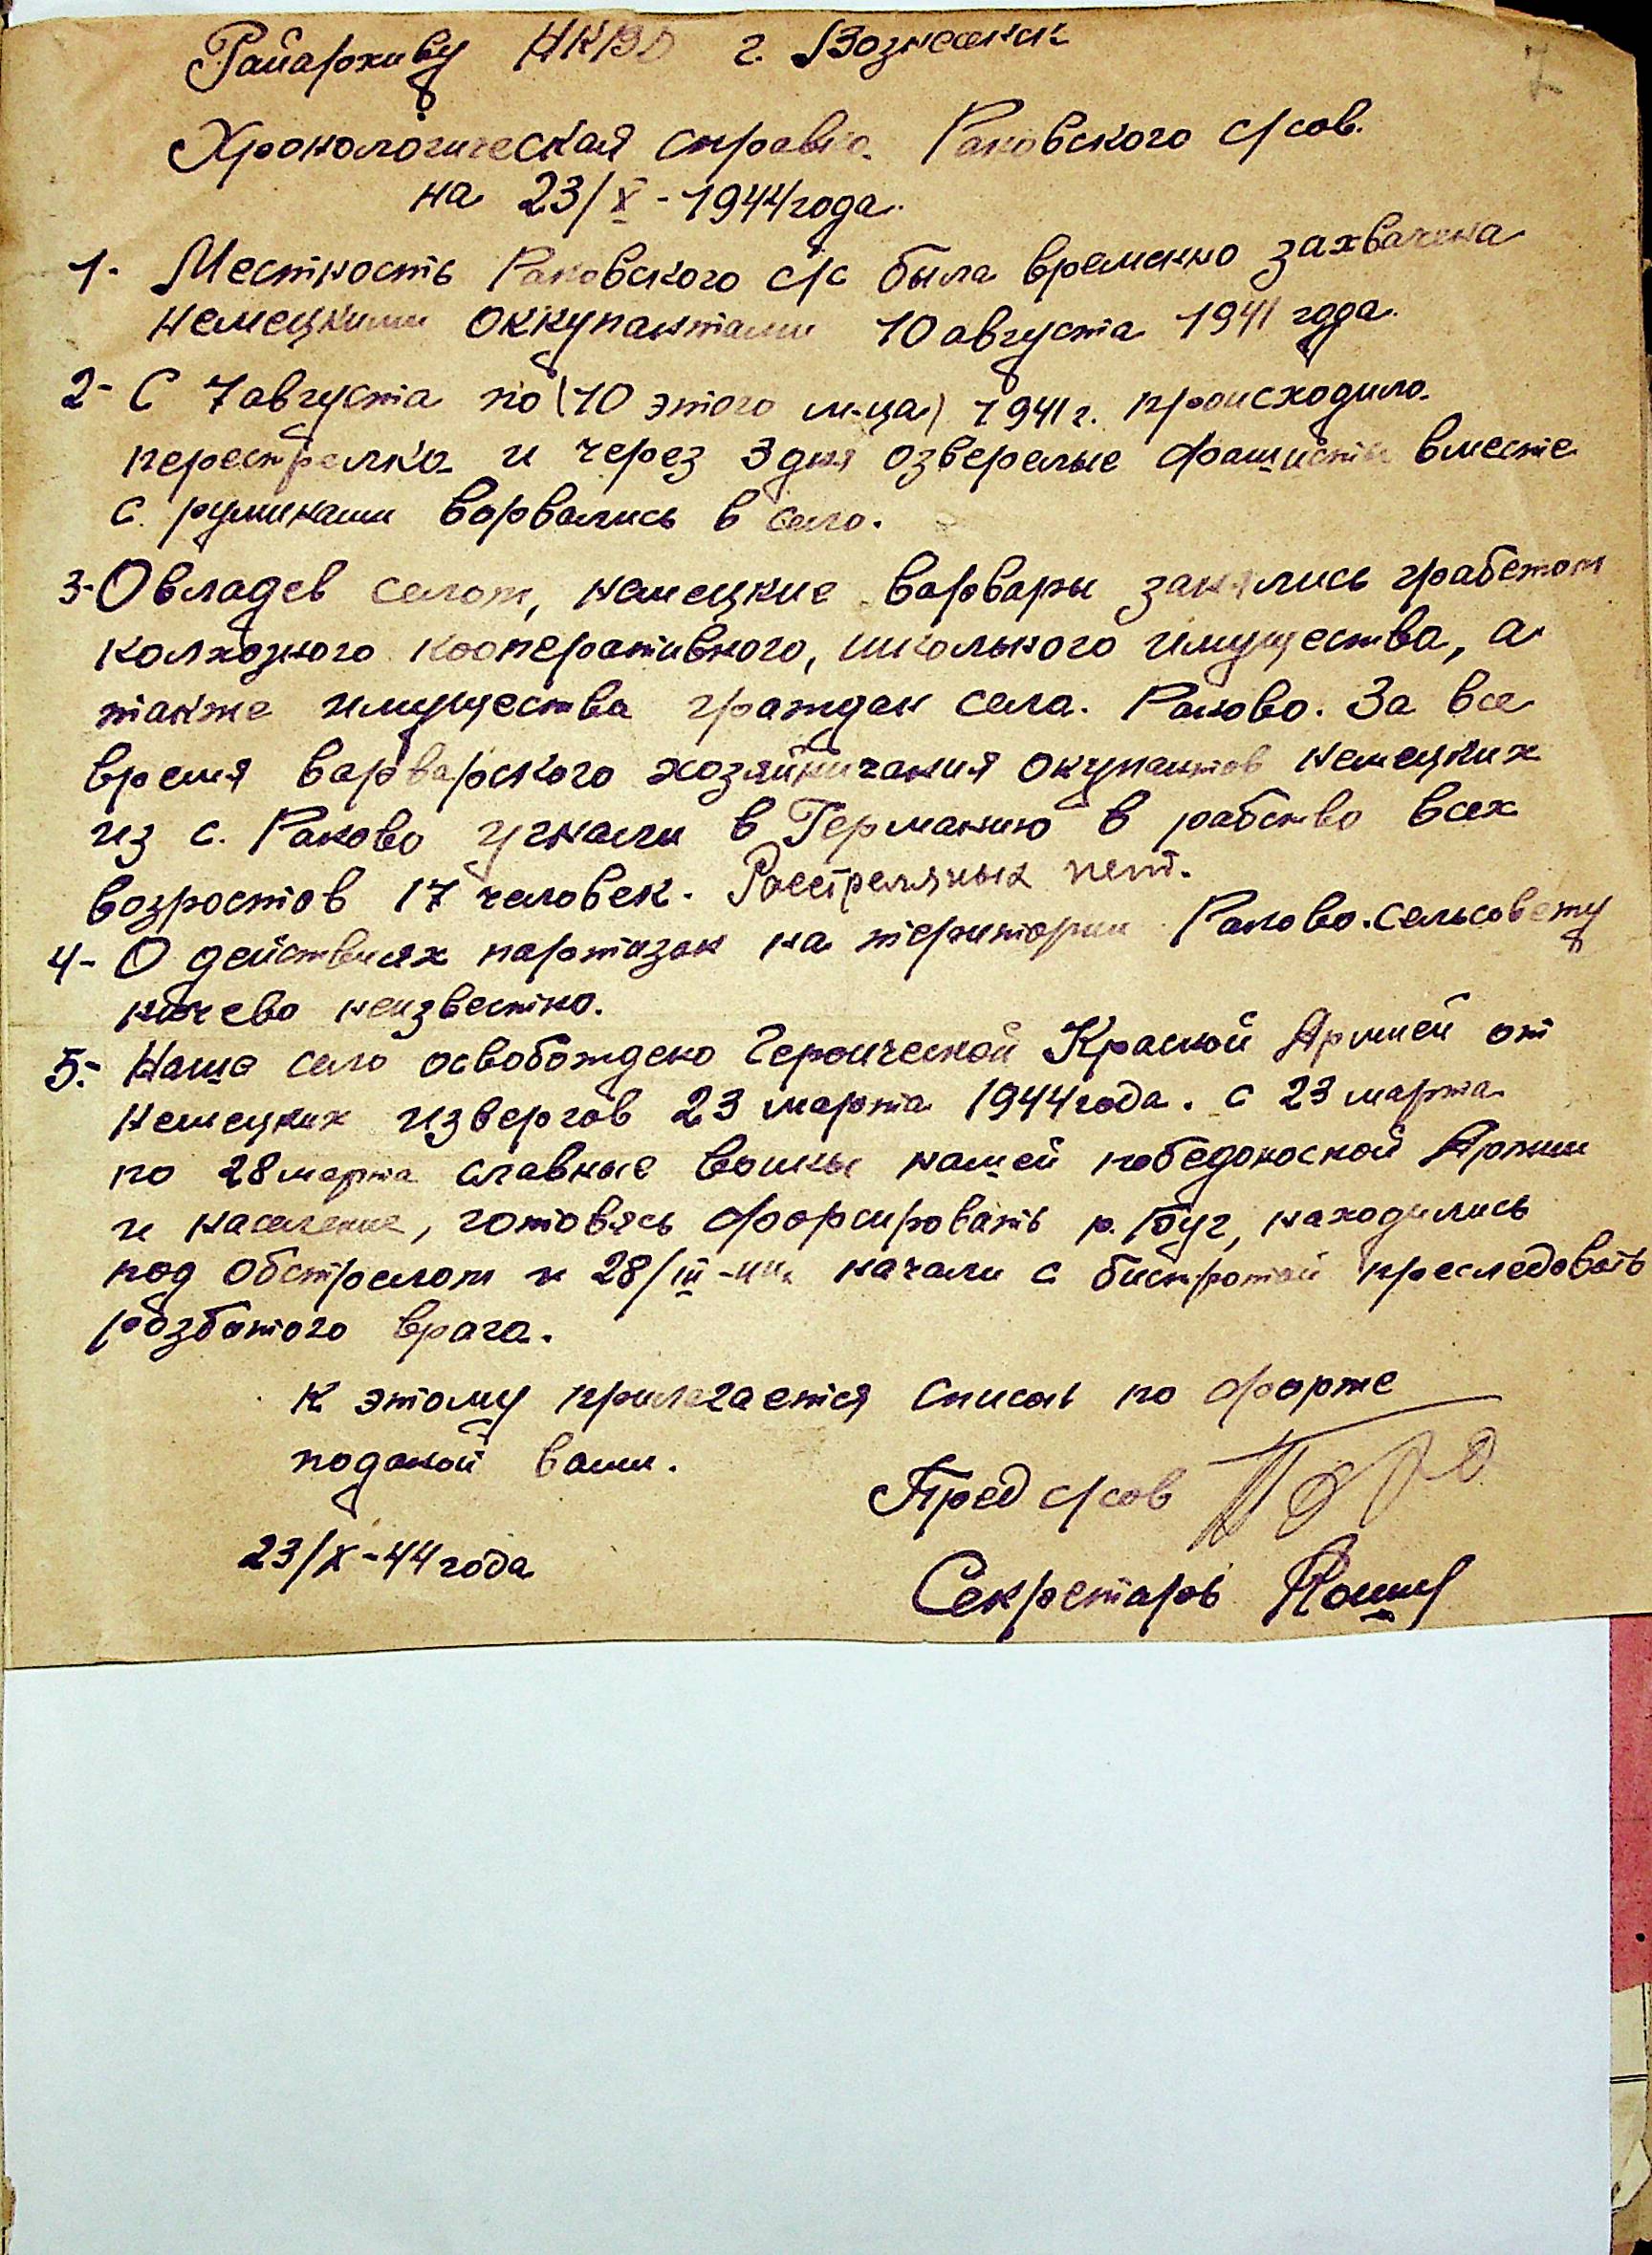 Райархиву НКВД г. Вознесенск
7
Хронологическая справка Раковского с/сов.
на 23/X - 1944 года.
1. Местность Раковского с/с была временно захвачена
немецкими оккупантами 10 августа 1941 года.
2- С 7 августа по (10 этого м-ца) 1941 г. происходила
перестрелка и через 3 дня озверелые фашисты вместе
с румынами ворвались в село.
3- Овладев селом, немецкие варвары занялись грабежом
колхозного кооперативного, школьного имущества, а
также имущества граждан села. Раково. За все
время варварского хозяйничания окупантов немецких
из с. Раково угнали в Германию в рабство всех
возростов 17 человек. Расстреляных нет.
4- О действиях партизан на територии Раково. сельсовету
ничево неизвестно.
5.- Наше село освобождено Героической Красной Армией от
немецких извергов 23 марта 1944 года. С 23 марта
по 28 марта славные воины нашей победоносной Армии
и население, готовясь форсировать р. Буг, находились
под обстрелом и 28/III начали с быстротой преследовать
розбитого врага.
К этому прилагается список по форме
поданой вами.
Пред с/сов
23/X - 44 года
Секретарь